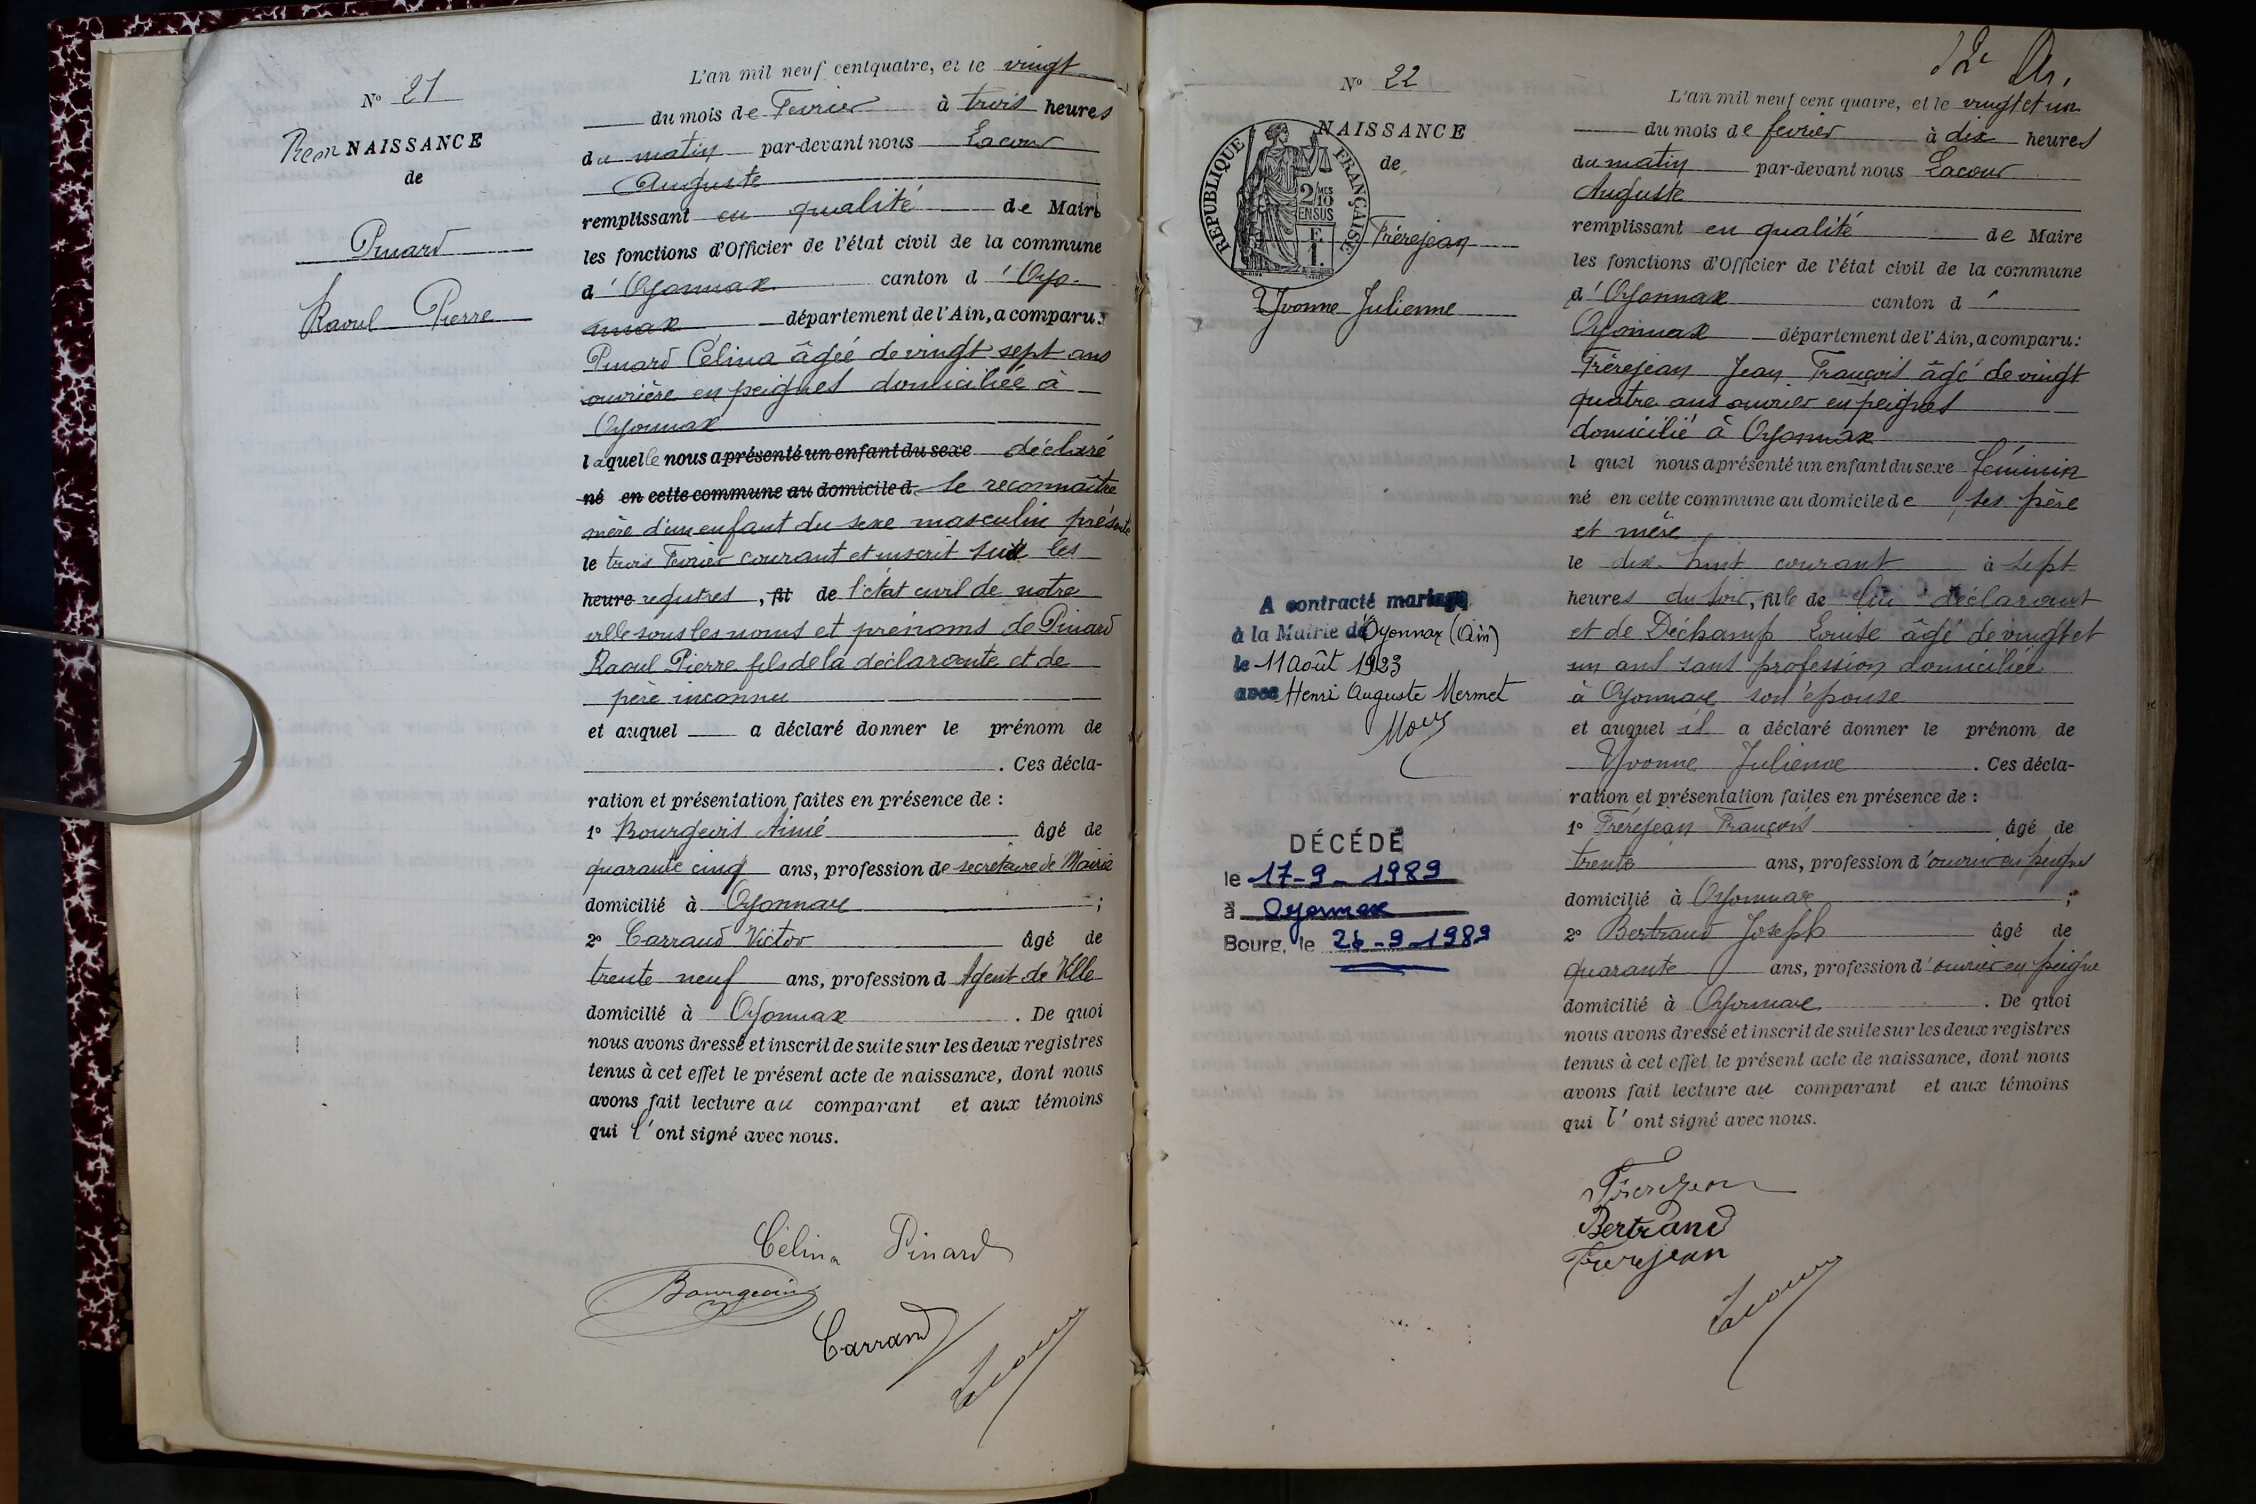 N° 21
Recon NAISSANCE
de
Pinard
Raoul Pierre
L'an mil neuf cent quatre, et le vingt
du mois de Fevrier à trois heures
du matin par-devant nous Lacour
Auguste
remplissant en qualité de Maire
les fonctions d'Officier de l'état civil de la commune
d'Oyonnax canton d'Oyo-
nnax département de l'Ain, a comparu :
Pinard Célina âgée de vingt sept ans
ouvrière en peignes domiciliée à
Oyonnax
laquelle nous a présenté un enfant du sexe déclaré
né en cette commune au domicile d se reconnaître
mère d'un enfant du sexe masculin présenté
le trois Fevrier courant et inscrit sur les
heure registres, fil de l'état civil de notre
ville sous les noms et prénoms de Pinard
Raoul Pierre fils de la déclarante et de
père inconnu
et auquel a déclaré donner le prénom de
. Ces décla-
ration et présentation faites en présence de :
1° Bourgeois Aimé âgé de
quarante cinq ans, profession de secrétaire de Mairie
domicilié à Oyonnax ;
2° Carraud Victor âgé de
trente neuf ans, profession d Agent de Ville
domicilié à Oyonnax . De quoi
nous avons dressé et inscrit de suite sur les deux registres
tenus à cet effet le présent acte de naissance, dont nous
avons fait lecture au comparant et aux témoins
qui l'ont signé avec nous.
Célina Pinard
Bourgeois
Carrand
Lacour
N° 22
NAISSANCE
de
RÉPUBLIQUE FRANÇAISE
2/10
EN SUS
E
1.
Frèrejean
Yvonne Julienne
A contracté mariage
à la Mairie de Oyonnax (Ain)
le 11 Août 1923
avec Henri Auguste Mermet
DÉCÉDÉ
le 17-9-1989
à Oyonnax
Bourg, le 26-9-1989
L'an mil neuf cent quatre, et le vingt et un
du mois de fevrier à dix heures
du matin par-devant nous Lacour
Auguste
remplissant en qualité de Maire
les fonctions d'Officier de l'état civil de la commune
d'Oyonnax canton d'
Oyonnax département de l'Ain, a comparu :
Frèrejean Jean François âgé de vingt
quatre ans ouvrier en peignes
domicilié à Oyonnax
l quel nous a présenté un enfant du sexe féminin
né en cette commune au domicile de ses père
et mère
le dix huit courant à sept
heures du soir, fille de lui déclarant
et de Déchamp Louise âgé de vingt et
un ans sans profession domiciliée
à Oyonnax son épouse
et auquel il a déclaré donner le prénom de
Yvonne Julienne . Ces décla-
ration et présentation faites en présence de :
1° Frèrejean François âgé de
trente ans, profession d'ouvrier en peignes
domicilié à Oyonnax ;
2° Bertrand Joseph âgé de
quarante ans, profession d'ouvrier en peigne
domicilié à Oyonnax . De quoi
nous avons dressé et inscrit de suite sur les deux registres
tenus à cet effet le présent acte de naissance, dont nous
avons fait lecture au comparant et aux témoins
qui l'ont signé avec nous.
Frerejean
Bertrand
Frerejean
Lacour